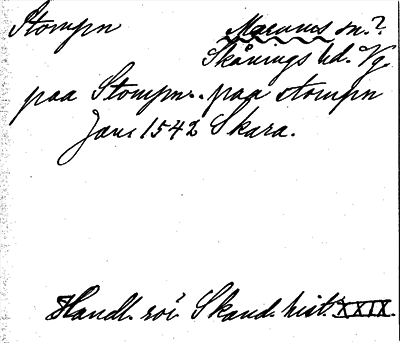 Stompn Marums sn.?
Skånings hd. Vg.
paa Stompn. paa stompn
Jan. 1542 Skara.
Handl. rör Skand. hist. XXIX.